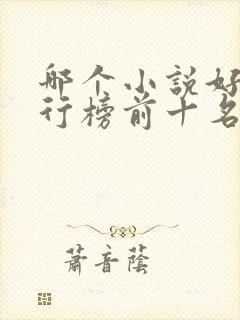 哪个小说好
行榜前十名
萧音蔭